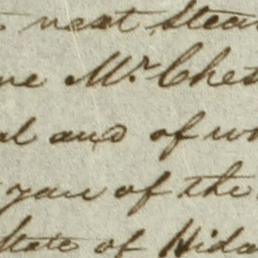 next Stea
me Mr. Ches
al and of w
you of the
State of Hida